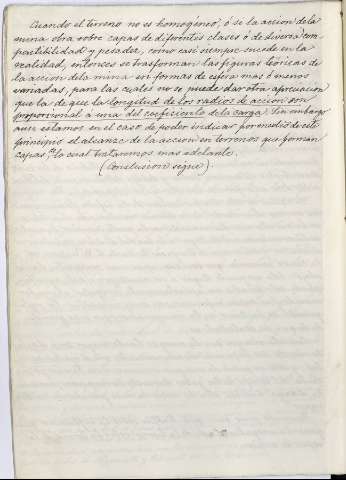 Cuando el terreno no es homogéneo, ó se la accion de la
mina obra sobre capas de diferentes clases ó de diversa com-
pactibilidad y pesadez, como casi siempre sucede en la
realidad, entonces se trasforman las figuras teóricas de
la accion de la mina en formas de esfera mas ó menos
variadas, para las cuales no se puede dar otra apreciacion
que la de que la longitud de los radios de accion son
proporcional a una del coeficiente de la carga. Sin embargo
aun estamos en el caso de poder indicar por medio de este
principio el alcance de la accion en terrenos que forman
capas, lo cual trataremos mas adelante.
(Conclusion sigue)